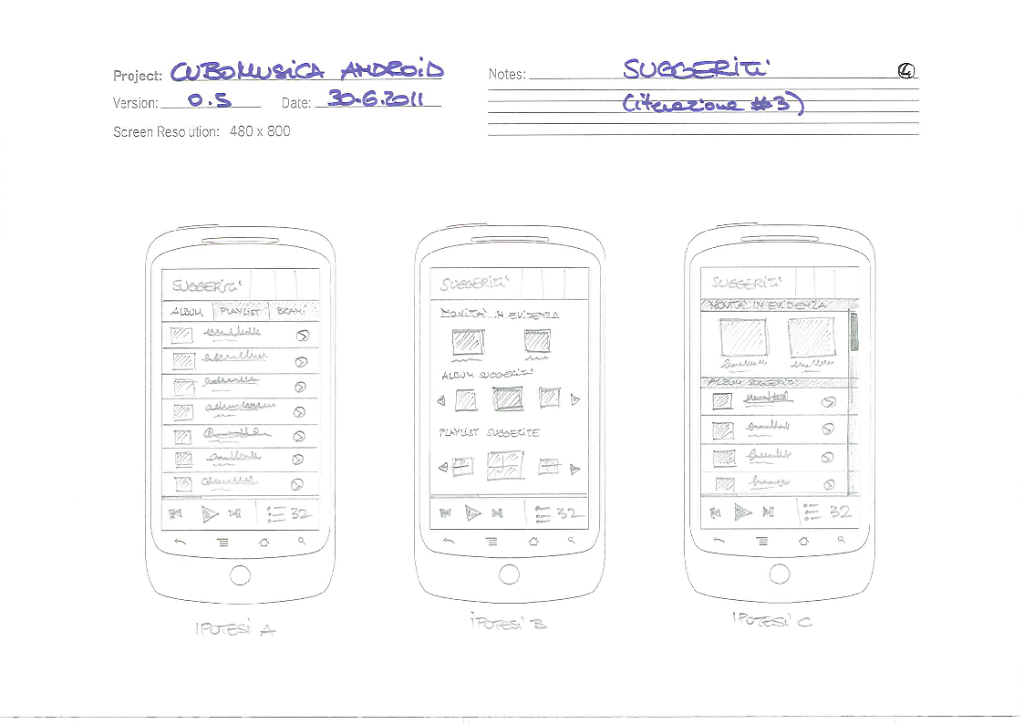 Project: CUBOMUSICA ANDROID
Version: 0.5 Date: 30.6.2011
Screen Resolution: 480 x 800
Notes: SUGGERITI 4
(iterazione #3)
SUGGERITI
ALBUM PLAYLIST BRANI
32
IPOTESI A
SUGGERITI
NOVITA' IN EVIDENZA
ALBUM SUGGERITI
PLAYLIST SUGGERITE
32
IPOTESI B
SUGGERITI
NOVITA' IN EVIDENZA
ALBUM SUGGERITI
32
IPOTESI C